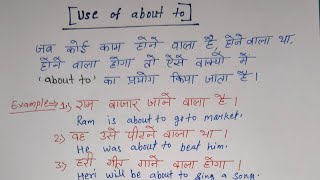 [use of about to]
जब कोई काम होने वाला है, होने वाला था,
होने वाला होगा तो ऐसे वाक्यों में
'about to' का प्रयोग किया जाता है।
Example→ 1) राम बाजार जाने वाला है।
Ram is about to go to market.
2) वह उसे पीटने वाला था।
He was about to beat him.
3) हरी गीत गाने वाला होगा।
Heri will be about to sing a song.